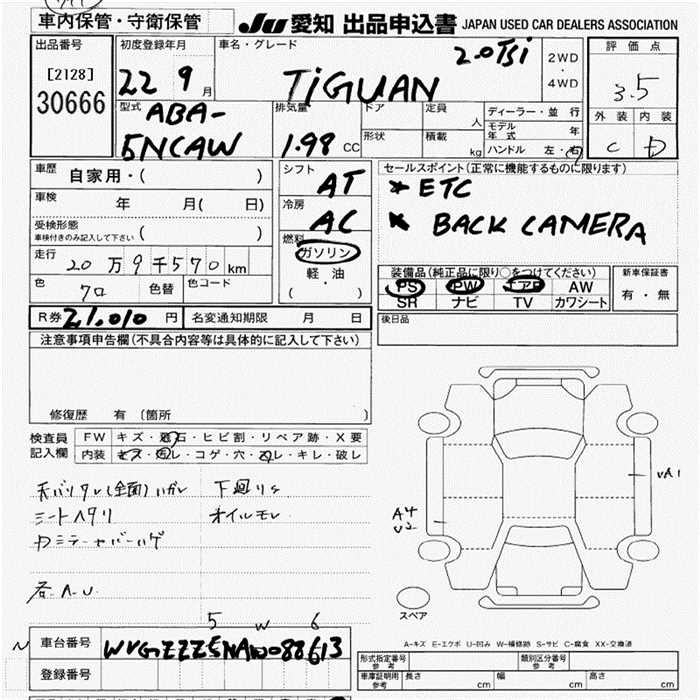 車内保管・守衛保管
JU 愛知 出品申込書 JAPAN USED CAR DEALERS ASSOCIATION
出品番号
[2128]
30666
初度登録年月
22 9月
車名・グレード
2.0TSi
TiGUAN
2WD
・
4WD
評価点
3.5
外装 内装
C D
型式
ABA-
5NCAW
排気量
1.98 CC
ドア
定員 人
形状
積載 kg
ディーラー・並行
モデル年式 年
ハンドル 左・右
車歴
自家用・( )
車検 年 月( 日)
受検形態
車検付きのみ記入して下さい ( )
走行
20万9千570km
色
クロ
色替
色コード
シフト
AT
冷房
AC
燃料
ガソリン
軽・油
( ・ )
セールスポイント(正常に機能するものに限ります)
* ETC
* BACK CAMERA
装備品(純正品に限り○をつけてください)
PS PW エアB AW
SR ナビ TV カワシート
新車保証書
有・無
R券 21,010 円
名変通知期限 月 日
後日品
注意事項申告欄(不具合内容等は具体的に記入して下さい)
修復歴 有 〔箇所 〕
検査員
記入欄
FW キズ・飛石・ヒビ割・リペア跡・X要
内装 キズ・汚レ・コゲ・穴・スレ・キレ・破レ
天バリタレ(全面)ハガレ 下廻りS
シートヘタリ オイルモレ
A4
U2
UA1
スペア
A-キズ E-エクボ U-凹み W-補修跡 S-サビ C-腐食 XX-交換済
5 W 6
N
車台番号
WVGZZZ5NAW088613
登録番号
形式指定番号
参考
類別区分番号
参考
車庫証明用
参考
長さ cm 幅 cm 高さ cm